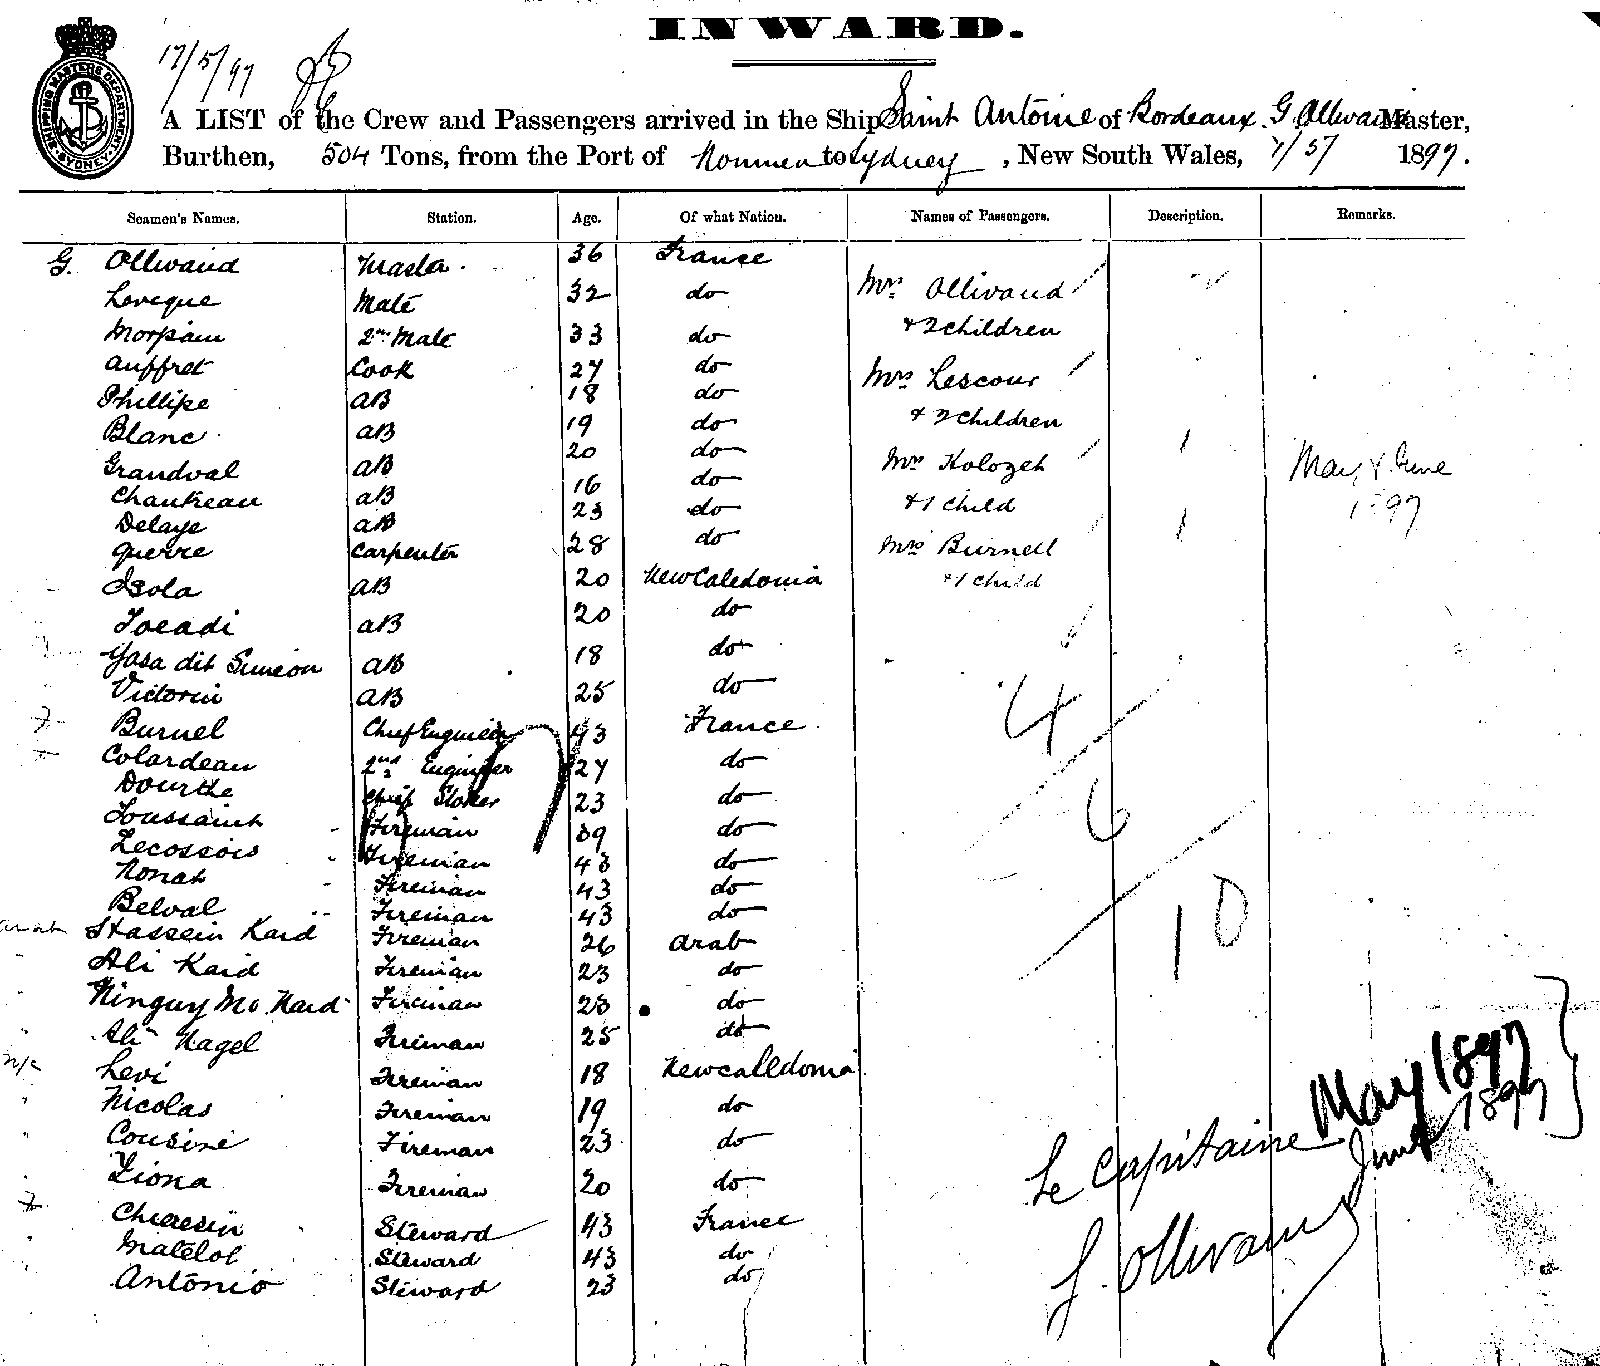 INWARD.
SHIPPING MASTERS DEPARTMENT SYDNEY
17/5/97
A LIST of the Crew and Passengers arrived in the Ship Saint Antoine of Bordeaux. G Ollivaud Master,
Burthen, 504 Tons, from the Port of Noumea to Sydney, New South Wales, 1897.
Seamen's Names. Station. Age. Of what Nation. Names of Passengers. Description. Remarks.
G. Ollivaud Master. 36 France
Mrs Ollivaud
Leveque Mate 32 do
& 2 children
Morpain 2nd Mate 33 do
Auffret Cook 27 do
Mrs Lescour
Phillipe AB 18 do
& 2 children
Blanc AB 19 do
Grandval AB 20 do
Mrs Kolozeh
May & June
1897
Chautreau AB 16 do
& 1 child
Delaye AB 23 do
Querre Carpenter 28 do
Mrs Burnell
& 1 child
Isola AB 20 New Caledonia
Toeadi AB 20 do
Yasa dit Simeon AB 18 do
Victorin AB 25 do
4
Burnel Chief Engineer 43 France
Colardeau 2nd Engineer 27 do
Dourthe Chief Stoker 23 do
6
Toussaint Fireman 39 do
Lecossois Fireman 43 do
Nonat Fireman 43 do
Belval Fireman 43 do
10
Hassein Kaid Fireman 26 Arab
Ali Kaid Fireman 23 do
Ninguy Mo Kaid Fireman 28 do
Ali Nagel Fireman 25 do
Levi Fireman 18 New Calledonia
May 1897
June 1897
Nicolas Fireman 19 do
Cousine Fireman 23 do
Le Capitaine
Ziona Fireman 20 do
Steward 43 France
G. Ollivaud
Matelot Steward 43 do
Antonio Steward 23 do